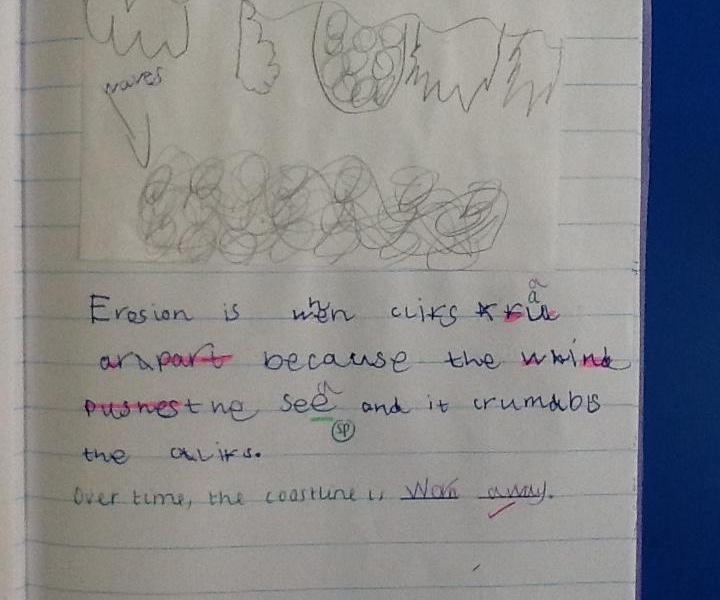 waves
Erosion is when clifs
arapart because the whind
pushesthe see and it crumabls
the clifs.
Over time, the coastline is Worn away.
sp